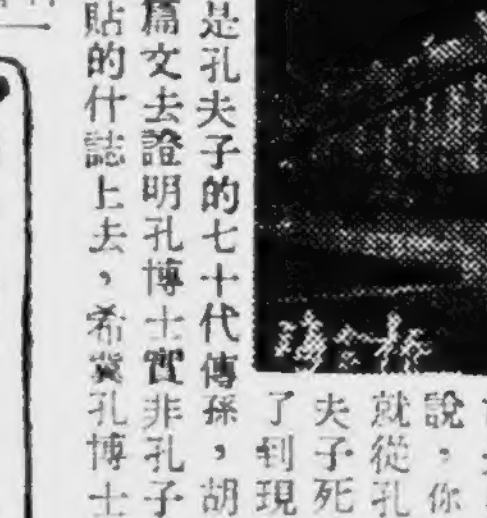 說，你
就從孔
夫子死
了到現
是孔夫子的七十代傳孫，胡
篇文去證明孔博士實非孔子
貼的什誌上去，希冀孔博士